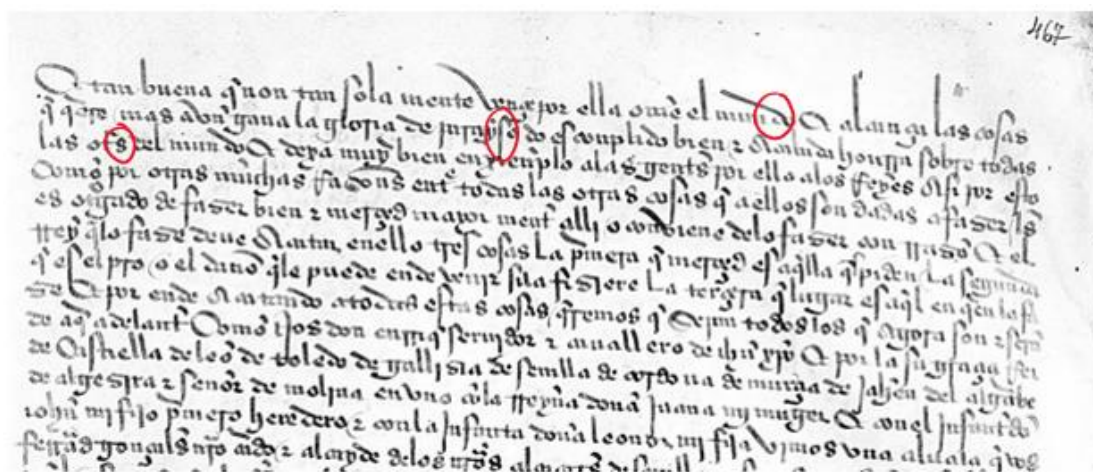 467
Et tan buena q̃ non tan sola mente vençe por ella om̃e el mundo Et alcança las cosas
q̃ q̃ere mas avn gana la gloria de
las del mundo Et dexa muy bien enxenplo alas gentes por ello alos Reyes Asi por esto
Como por otras muchas Razones ent̃ todas las otras cosas q̃ a ellos son dadas a faser
es de faser bien τ merçed mayor ment̃ alli o conviene delo faser con rrazõ Et el
rrey q̃ lo fase deve catar en ello tres cosas la p̃mera q̃ merçed es aq̃lla q̃ piden la segunda
q̃ es el pro o el daño q̃ le puede ende venir si la fisiere la terçera q̃ lugar es aq̃l en q̃ en lo fa
se Et por ende catando a todas estas cosas q̃remos q̃ sepan todos los q̃ agora son τ serã
de aq̃ adelant̃ Como Nos don enrriq̃ seruidor τ cauallero de ihũ xp̃o Et por la su graçia Rei
de Castiella de leõ de toledo de gallisia de seuilla de cordoua de murçia de jahen del algarbe
de algesira τ señor de molina en vno cõ la rreyna doña Juana mi muger Et con el infant̃ dõ
iohñ mi fijo p̃mero heredero τ con la infanta doña leonor mi fija Vimos vna aluala q̃ vos
ferrãd τ alcayde delos